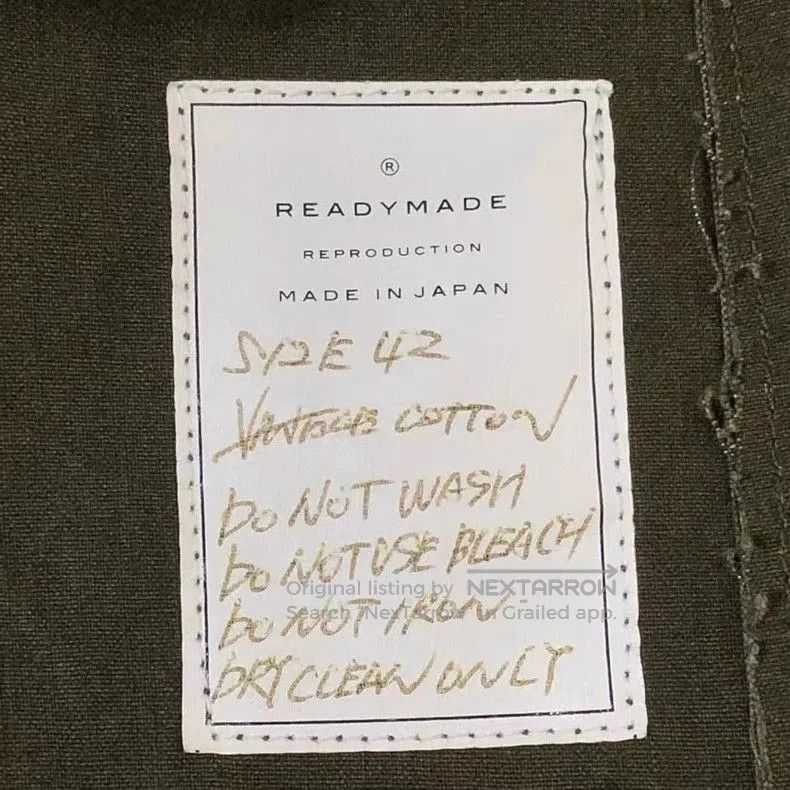 ®
READYMADE
REPRODUCTION
MADE IN JAPAN
SIZE 42
VINTAGE COTTON
DO NOT WASH
DO NOT USE BLEACH
Original listing by NEXTARROW
Search "NexTarrow" in Grailed app.
DO NOT IRON
DRY CLEAN ONLY